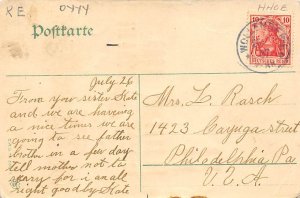 RE
0444
HNOE
Postkarte
10 10
DEUTSCHES REICH
July 26
From your sister Kate
and we are having
a nice time we are
going to see father
brother in a few day
tell mother not to
worry for i am all
right good by Kate
Mrs. L. Rasch
1423 Cayuga street
Philadelphia Pa
U.S.A